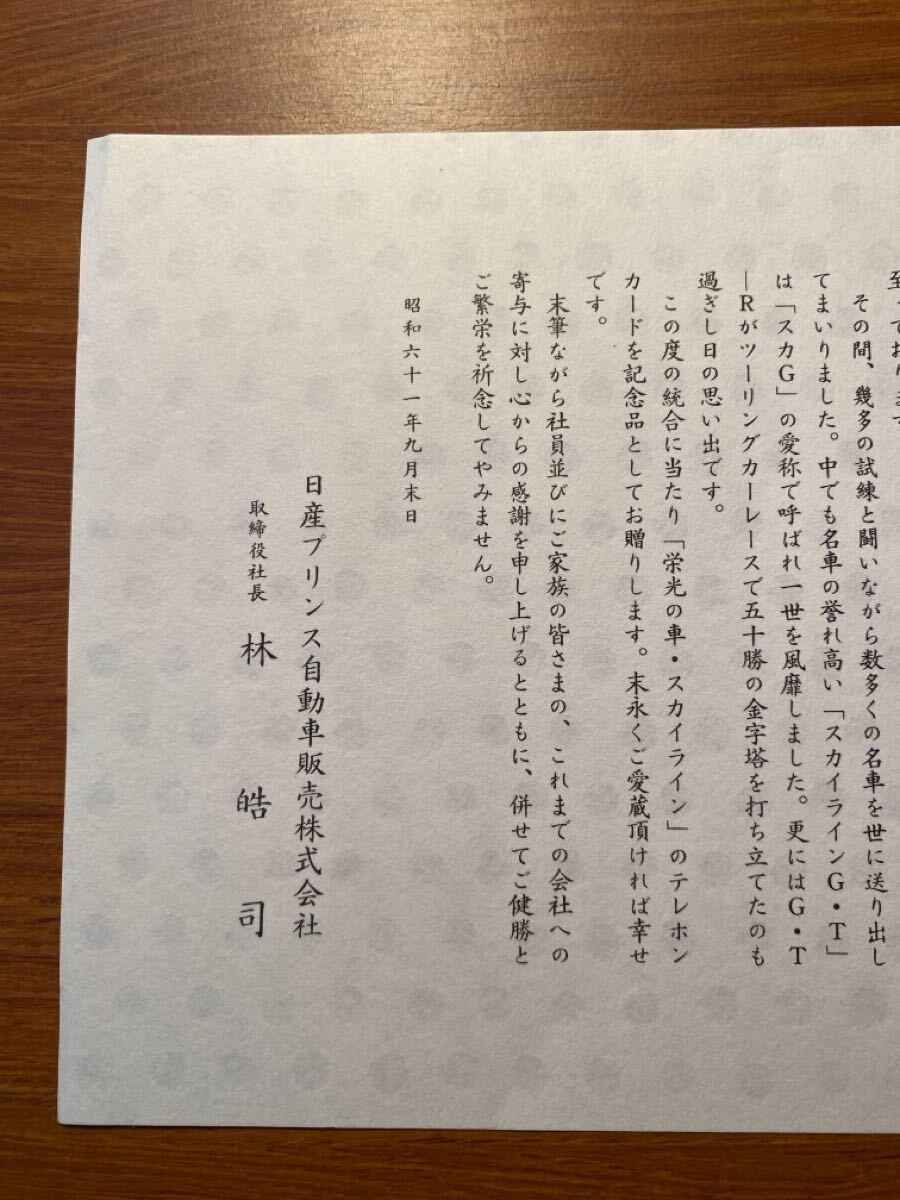 至っております
その間、幾多の試練と闘いながら数多くの名車を世に送り出し
てまいりました。中でも名車の誉れ高い「スカイラインG・T」
は「スカG」の愛称で呼ばれ一世を風靡しました。更にはG・T
―Rがツーリングカーレースで五十勝の金字塔を打ち立てたのも
過ぎし日の思い出です。
この度の統合に当たり「栄光の車・スカイライン」のテレホン
カードを記念品としてお贈りします。末永くご愛蔵頂ければ幸せ
です。
末筆ながら社員並びにご家族の皆さまの、これまでの会社への
寄与に対し心からの感謝を申し上げるとともに、併せてご健勝と
ご繁栄を祈念してやみません。
昭和六十一年九月末日
日産プリンス自動車販売株式会社
取締役社長 林 皓司